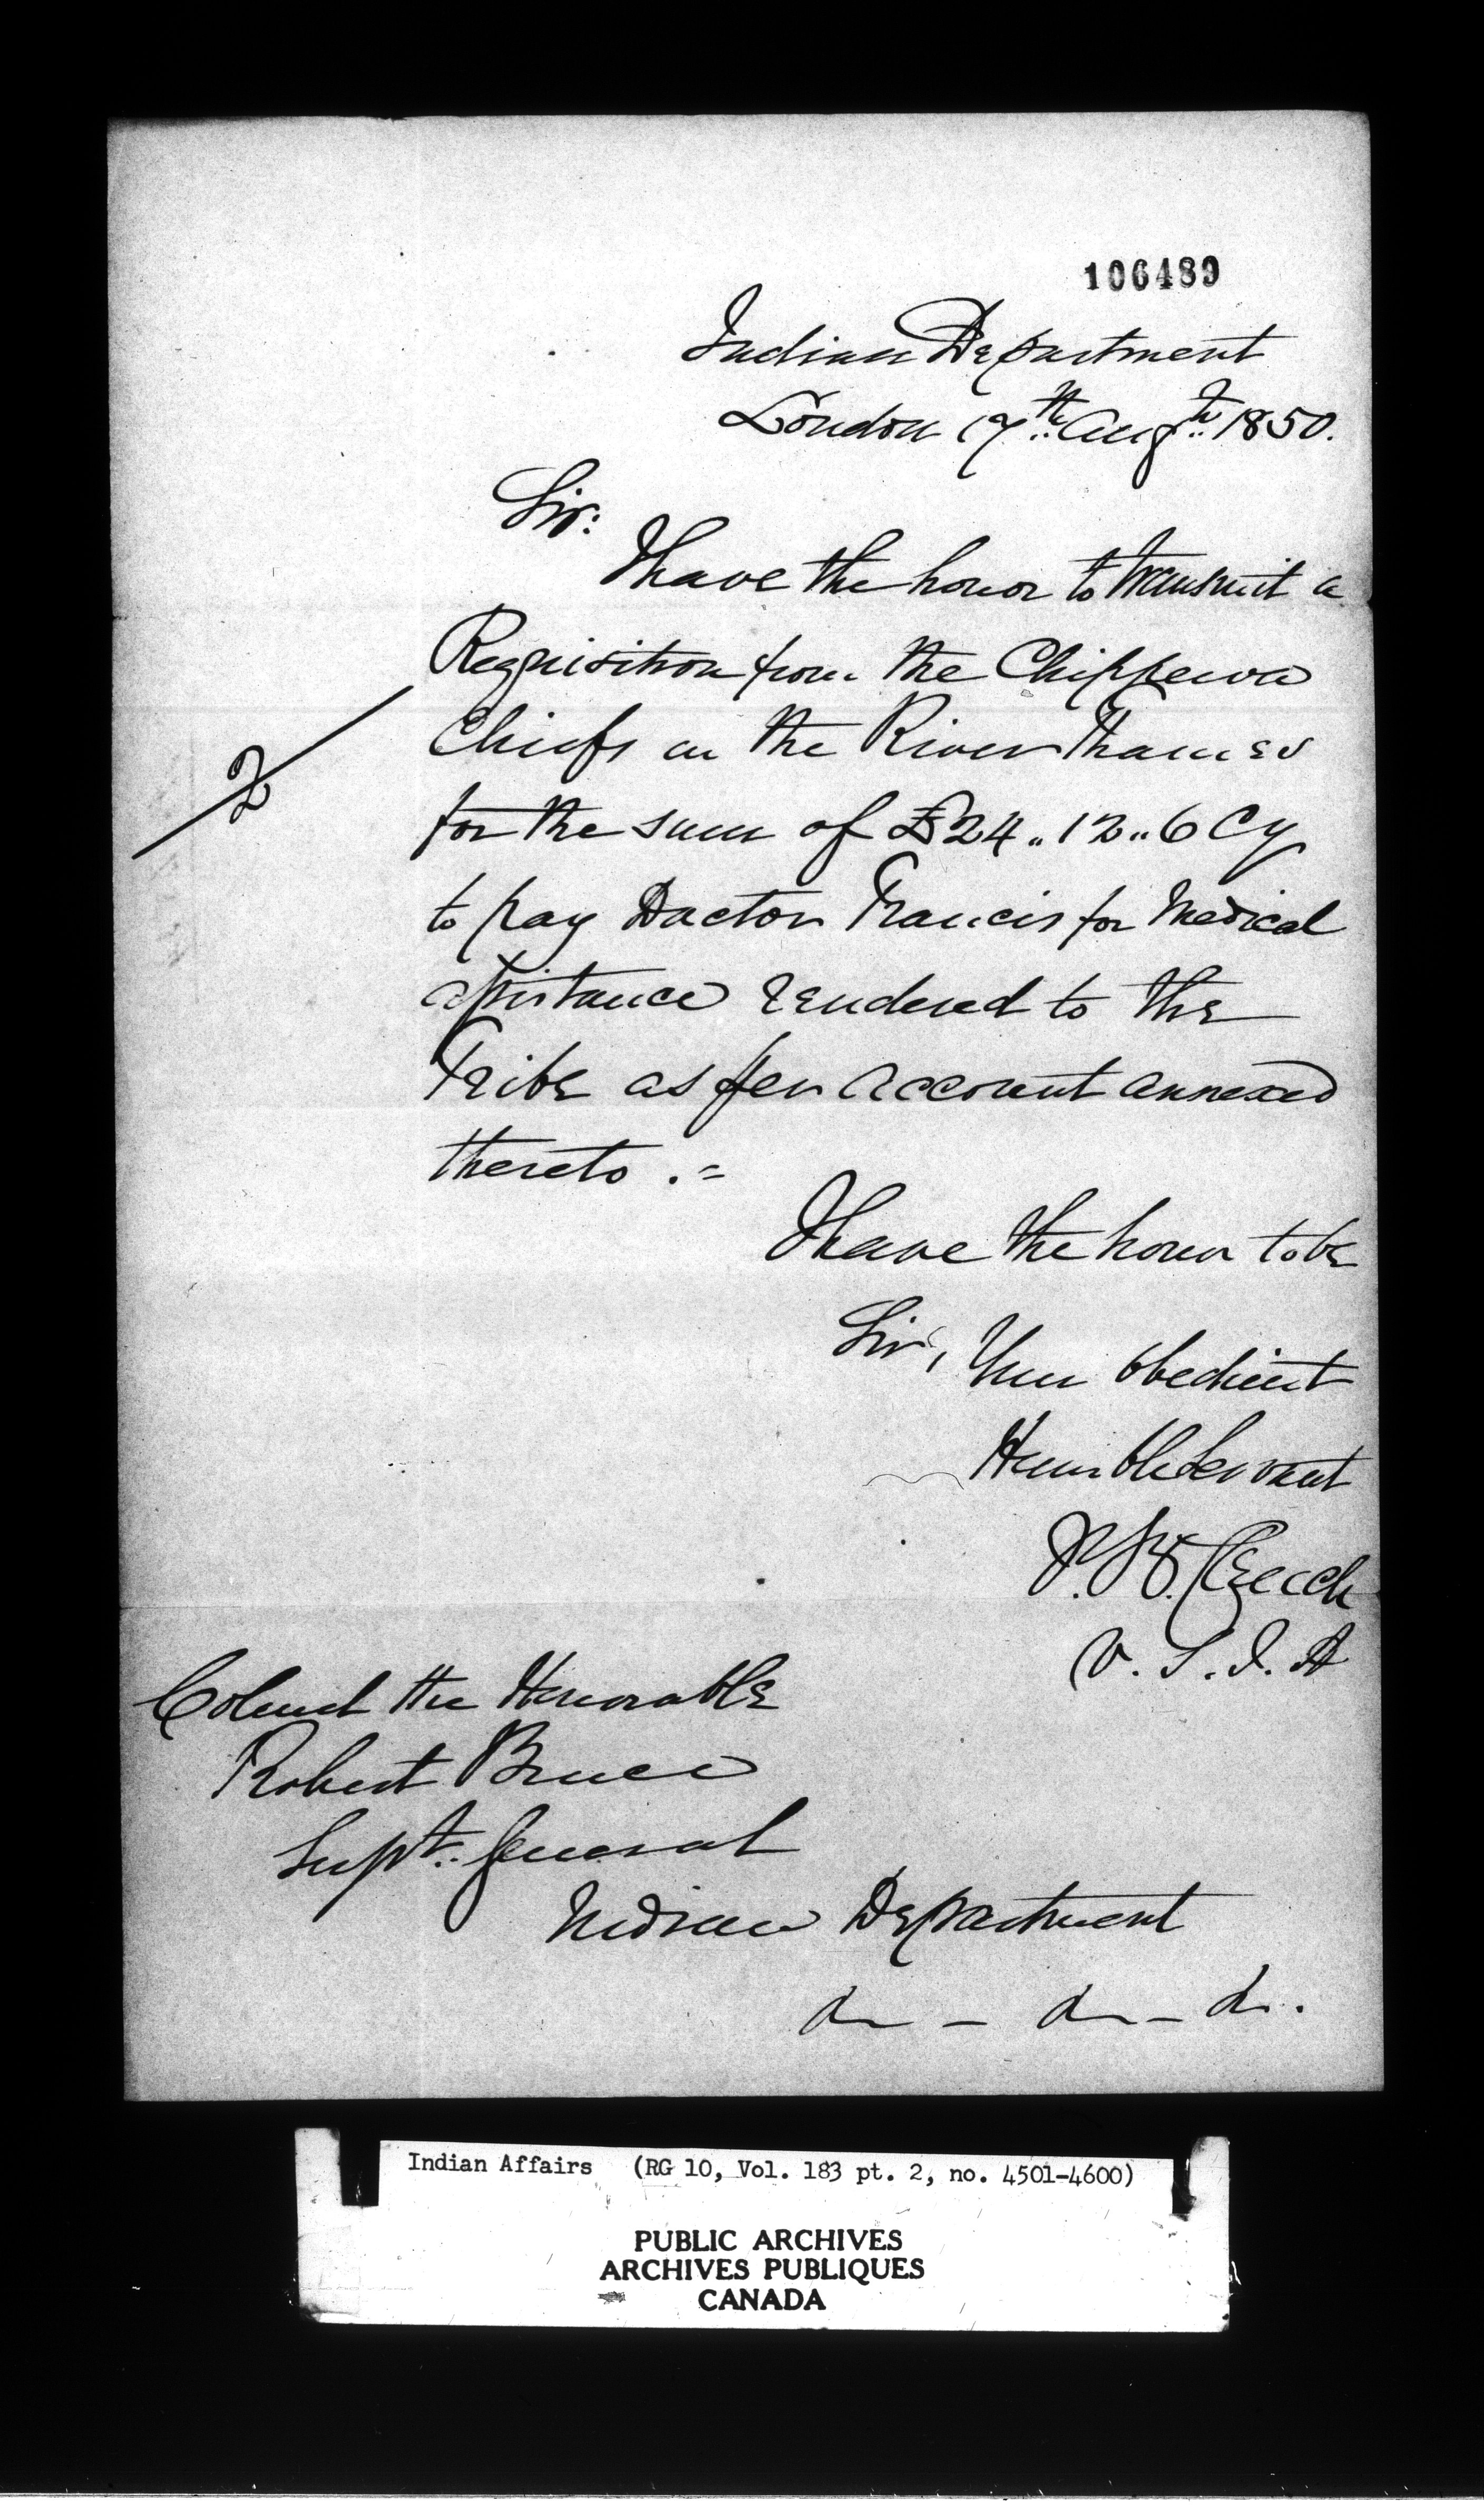 106489
Indian Department
London 17th Augst 1850.
Sir:
I have the honor to transmit a
Requisition from the Chippewa
Chiefs on the River Thames
for the sum of £24..12..6 Cy
to pay Doctor Francis for Medical
assistance rendered to the
Tribe as per account annexed
thereto.=
2
I have the honor to be
Sir, Your Obedient
Humble Servant
J. B. Clench
V. S. I. A
Colonel the Honorable
Robert Bruce
Supt. General
Indian Department
Indian Affairs (RG 10, Vol. 183 pt. 2, no. 4501-4600)
PUBLIC ARCHIVES
ARCHIVES PUBLIQUES
CANADA